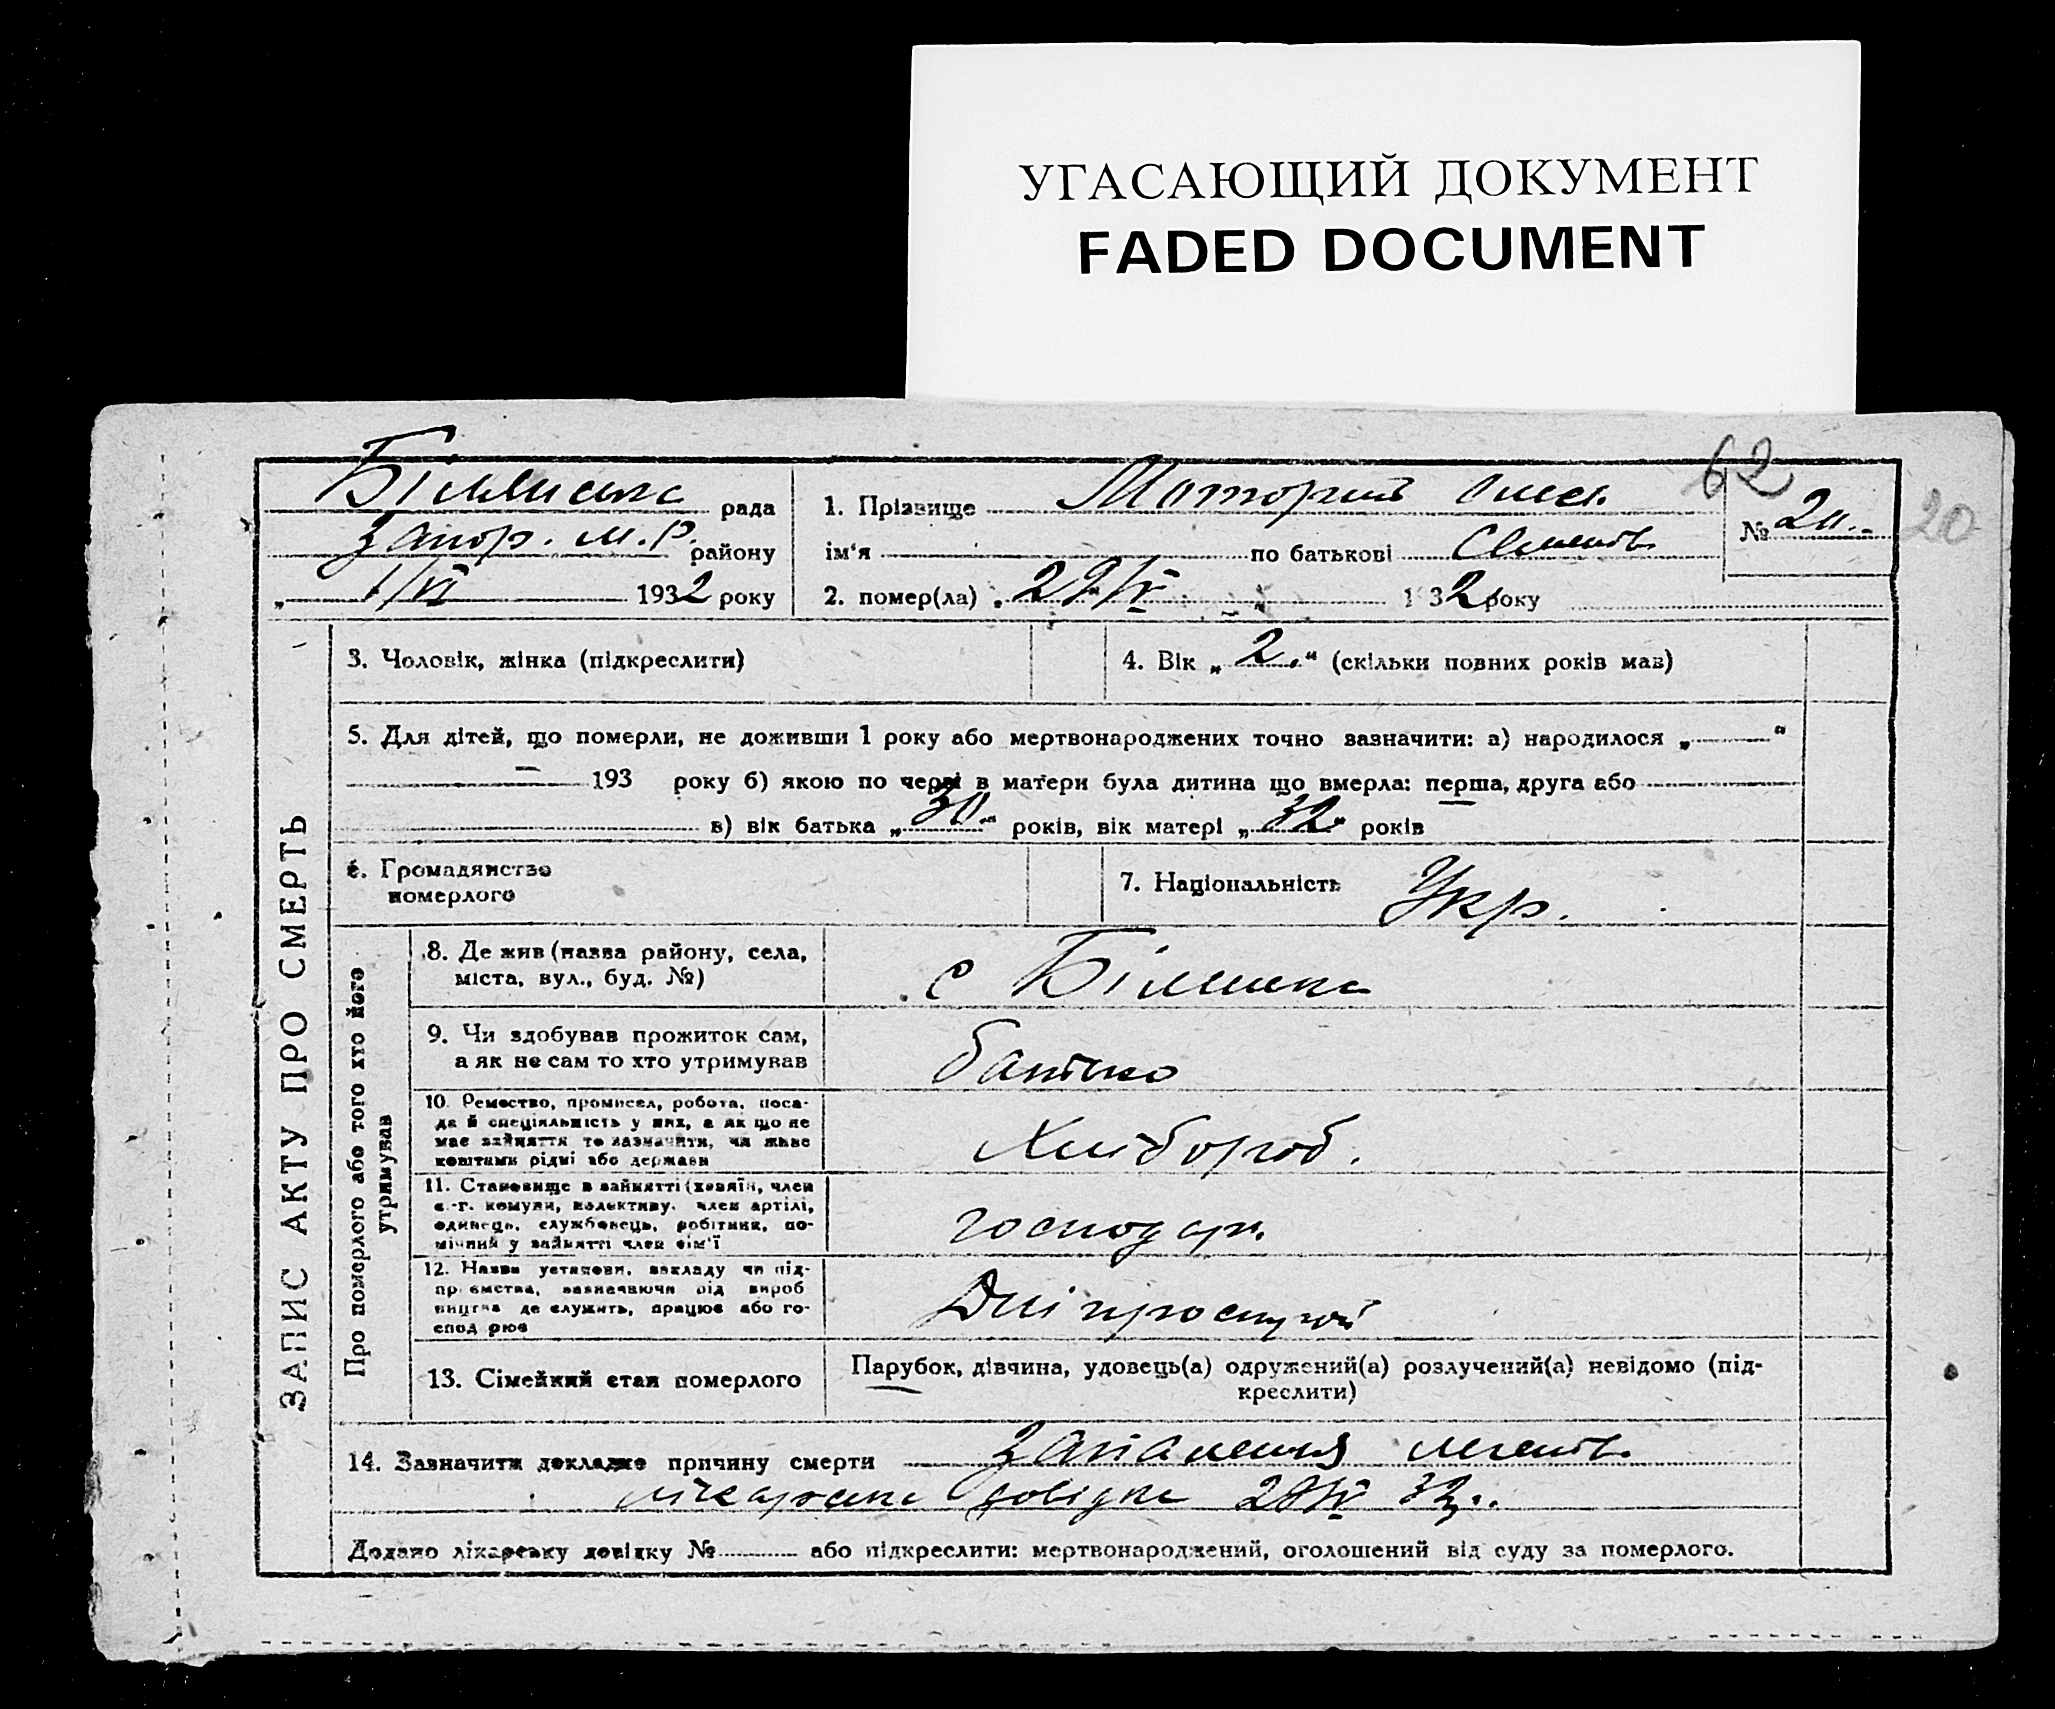 УГАСАЮЩИЙ ДОКУМЕНТ
FADED DOCUMENT
62
20
рада
Запор. м. р. району
„ 1/VI 1932 року
1. Прізвище Моторний
ім'я по батькові Семенов.
№ 20
2. помер(ла) 1932 року
ЗАПИС АКТУ ПРО СМЕРТЬ
3. Чоловік, жінка (підкреслити)
4. Вік „ 2 “ (скільки повних років мав)
5. Для дітей, що померли, не доживши 1 року або мертвонароджених точно зазначити: а) народилося „ “
— 193 року б) якою по черзі в матери була дитина що вмерла: перша, друга або
в) вік батька „ 30 “ років, вік матері „ 32 “ років
6. Громадянство
померлого
7. Національність Укр.
Про померлого або того хто його
утримував
8. Де жив (назва району, села,
міста, вул., буд. №)
с
9. Чи здобував прожиток сам,
а як не сам то хто утримував
батько
10. Ремество, промисел, робота, поса-
да й спеціяльність у них, а як що не
має зайняття то зазначити, чи живе
коштами рідні або держави
Хлібороб.
11. Становище в зайнятті (хазяїн, член
с.-г. комуни, колективу, член артілі,
одинець, службовець, робітник, по-
мічний у зайнятті член сім'ї
господар.
12. Назва установи, закладу чи під-
приємства, зазначаючи рід вироб
ництва де служить, працює або го-
спод рює
Дніпрострой
13. Сімейний стан померлого
Парубок, дівчина, удовець(а) одружений(а) розлучений(а) невідомо (під-
креслити)
14. Зазначити докладно причину смерти запалення легенів.
лікарська довідка 32
Додано лікарську довідку № або підкреслити: мертвонароджений, оголошений від суду за померлого.